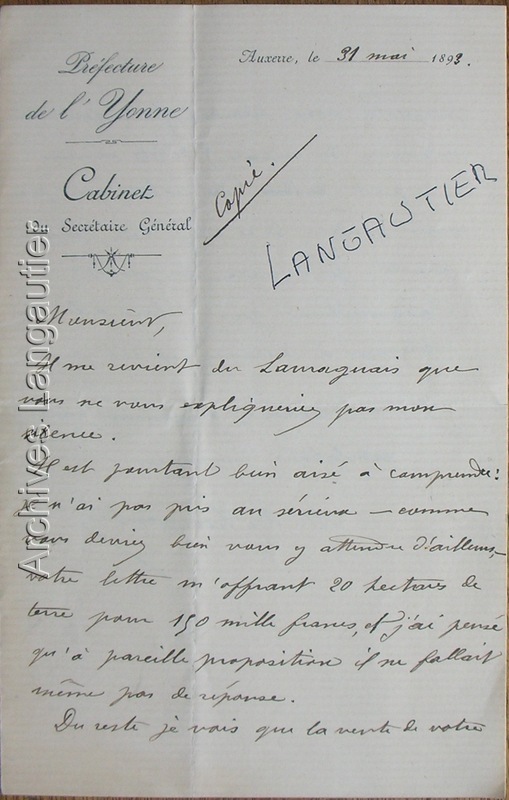 Préfecture
de l'Yonne
Cabinet
Du Secrétaire Général
Auxerre, le 31 mai 1893.
Copié.
LANGAUTIER
Monsieur,
Il me revient du Lauraguais que
vous ne vous expliqueriez pas mon
silence.
Il est pourtant bien aisé à comprendre:
je n'ai pas pris au sérieux – comme
vous devriez bien vous y attendre d'ailleurs, –
votre lettre m'offrant 20 hectares de
terre pour 150 mille francs, et j'ai pensé
qu'à pareille proposition il ne fallait
même pas de réponse.
Du reste je vois que la vente de votre
Archives Langautier